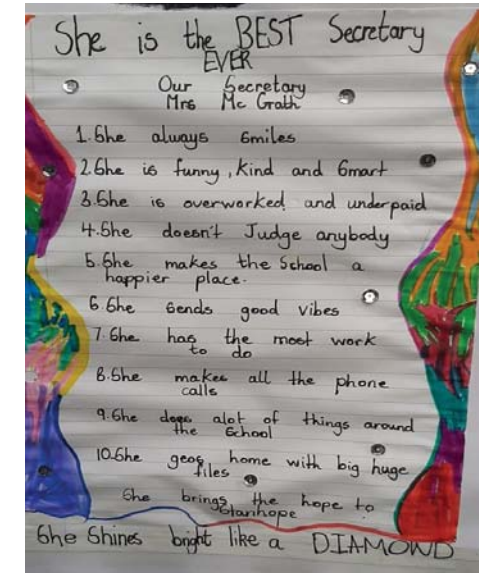 She is the BEST Secretary
EVER
Our Secretary
Mrs Mc Grath
1. She always smiles
2. She is funny, Kind and Smart
3. She is overworked and underpaid
4. She doesn't Judge anybody
5. She makes the School a
happier place.
6. She sends good vibes
7. She has the most work
to do
8. She makes all the phone
calls
9. She does alot of things around
the School
10. She geos home with big huge
files
She brings the hope to
Stanhope
She Shines bright like a DIAMOND